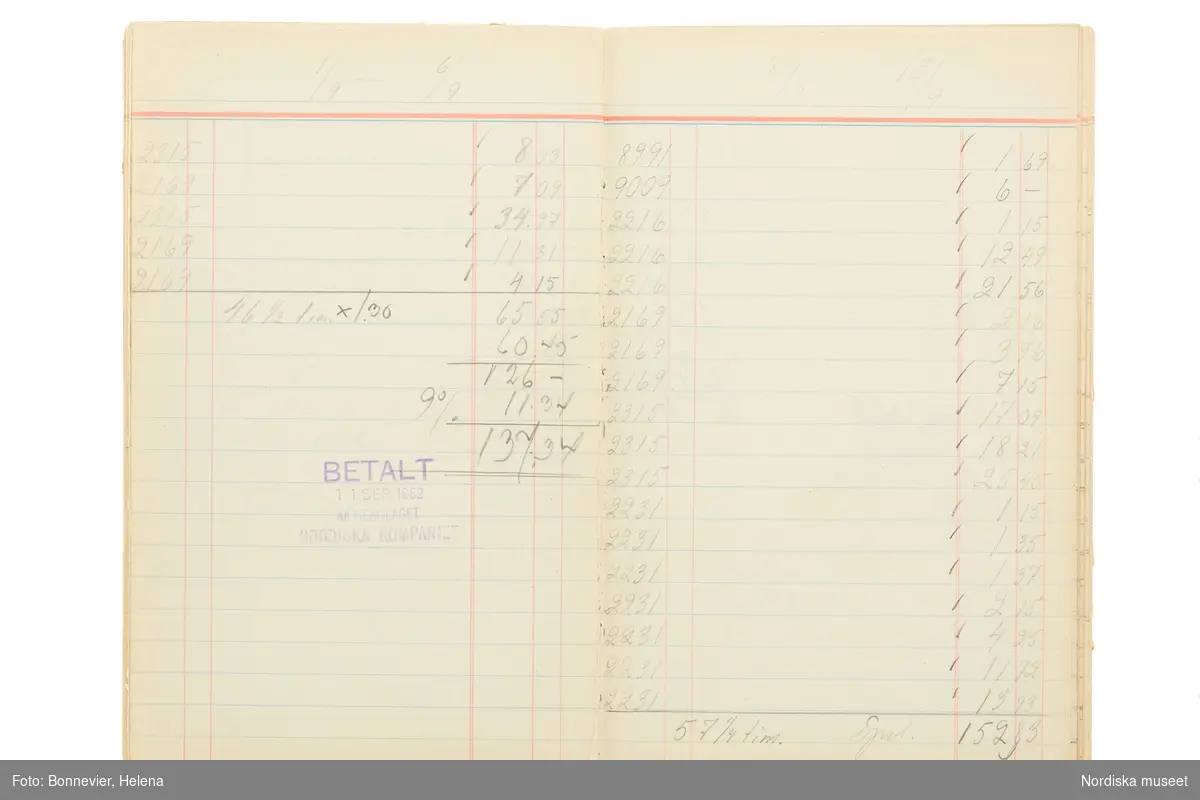 1/9 — 6/9
2315 8 03
2169 7 09
2315 34.97
2169 11 31
2169 4 15
46 1/2 tim. x 1.30 65 55
60.45
126 —
9% 11.34
137.34
BETALT
11 SEP. 1962
AKTIEBOLAGET
NORDISKA KOMPANIET
8991 1 69
9009 6 —
2216 1 15
2216 12 49
2216 21 56
2169 2 16
2169 3 96
2169 7 15
2315 17 09
2315 18 21
2315 25 45
2231 1 15
2231 1 35
2231 1 37
2231 2 15
2231 4 25
2231 11 72
2231 13 93
57 1/4 tim. 152 83
Foto: Bonnevier, Helena
Nordiska museet